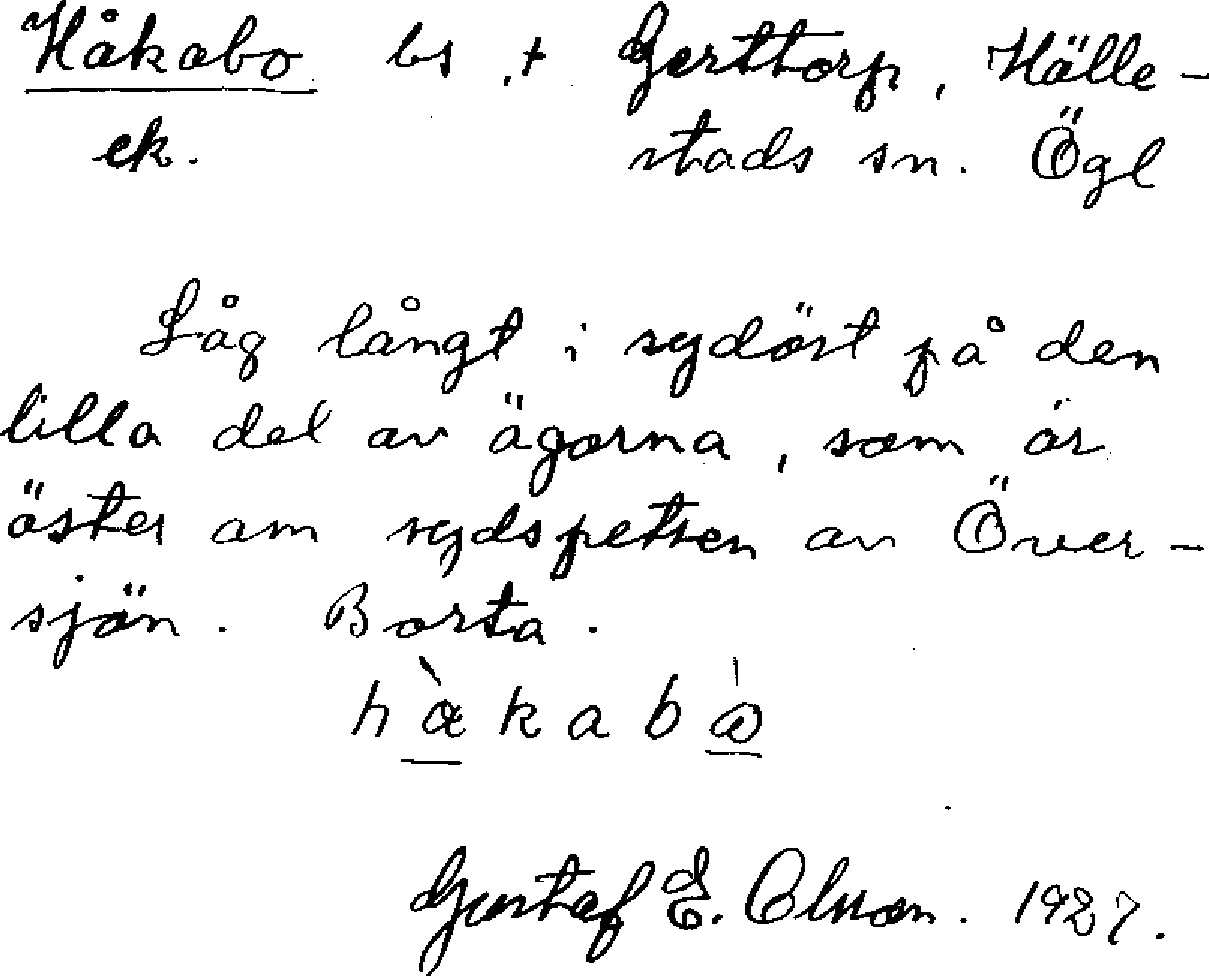 Håkabo bs ,+ Gerttorp, Hälle-
ek. stads sn. Ögl
Låg långt i sydöst på den
lilla del av ägorna, som är
öster om sydspetsen av Över-
sjön. Borta.
Gustaf E. Olsson. 1927.